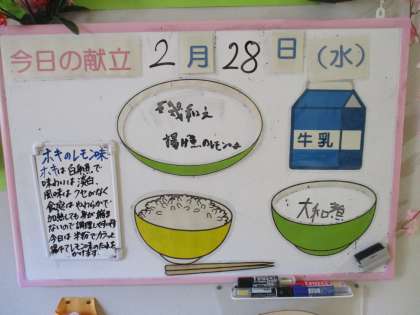 今日の献立 2月28日（水）
磯和え
揚げ煮のレモン
牛乳
大和煮
ホキのレモン味
ホキは白身魚で
味わいは淡白、
風味はクセがなく
食感はやわらかで
加熱しても身が縮ま
ないので調理し
今日は米粉でカラッと
揚げてレモン味のたれを
かけます。